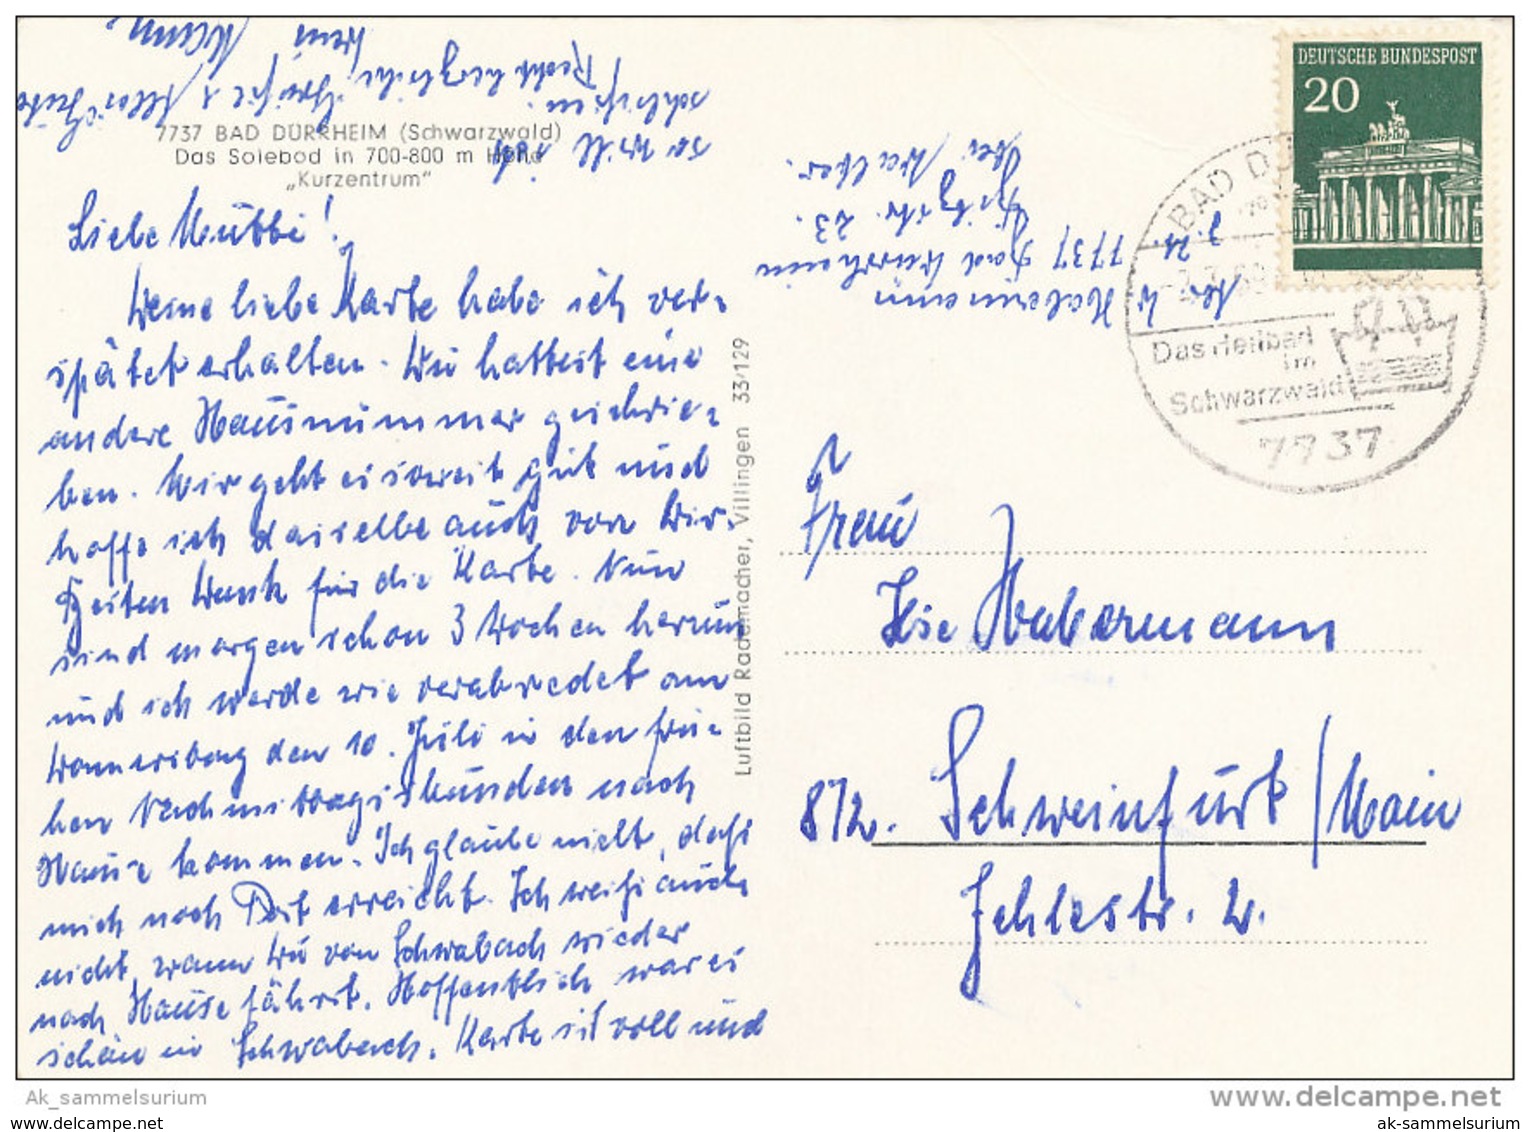 DEUTSCHE BUNDESPOST
20
BAD DÜ
Das Heilbad
im
Schwarzwald
7737
7737 BAD DÜRRHEIM (Schwarzwald)
Das Solebad in 700-800 m Höhe
„Kurzentrum"
Liebe Mubbi!
Deine liebe Karte habe ich ver-
spätet erhalten. Du hattest eine
andere Hausnummer geschrie-
ben. Mir geht es soweit gut und
hoffe ich dasselbe auch von Dir.
Besten Dank für die Karte. Nun
sind morgen schon 3 Wochen herum
und ich werde wie verabredet am
Donnerstag den 10. Juli in den frü-
hen Nachmittagsstunden nach
Hause kommen. Ich glaube nicht, daß
mich noch Post erreicht. Ich weiß auch
nicht, wann Du von Schwabach wieder
nach Hause fährst. Hoffentlich war es
schön in Schwabach. Karte ist voll und
so will ich
schließen.
Recht herzliche Grüße & alles Gute
Dein
Mann.
Luftbild Rademacher, Villingen 33/129
Abs. W. Habermann
z. Zt. 7737 Bad Dürrheim
Str. 23.
bei Walter.
Frau
Ilse Habermann
872. Schweinfurt/Main
Zehlestr. 2.
Ak_sammelsurium
www.delcampe.net
www.ak-sammelsurium.de
ak-sammelsurium